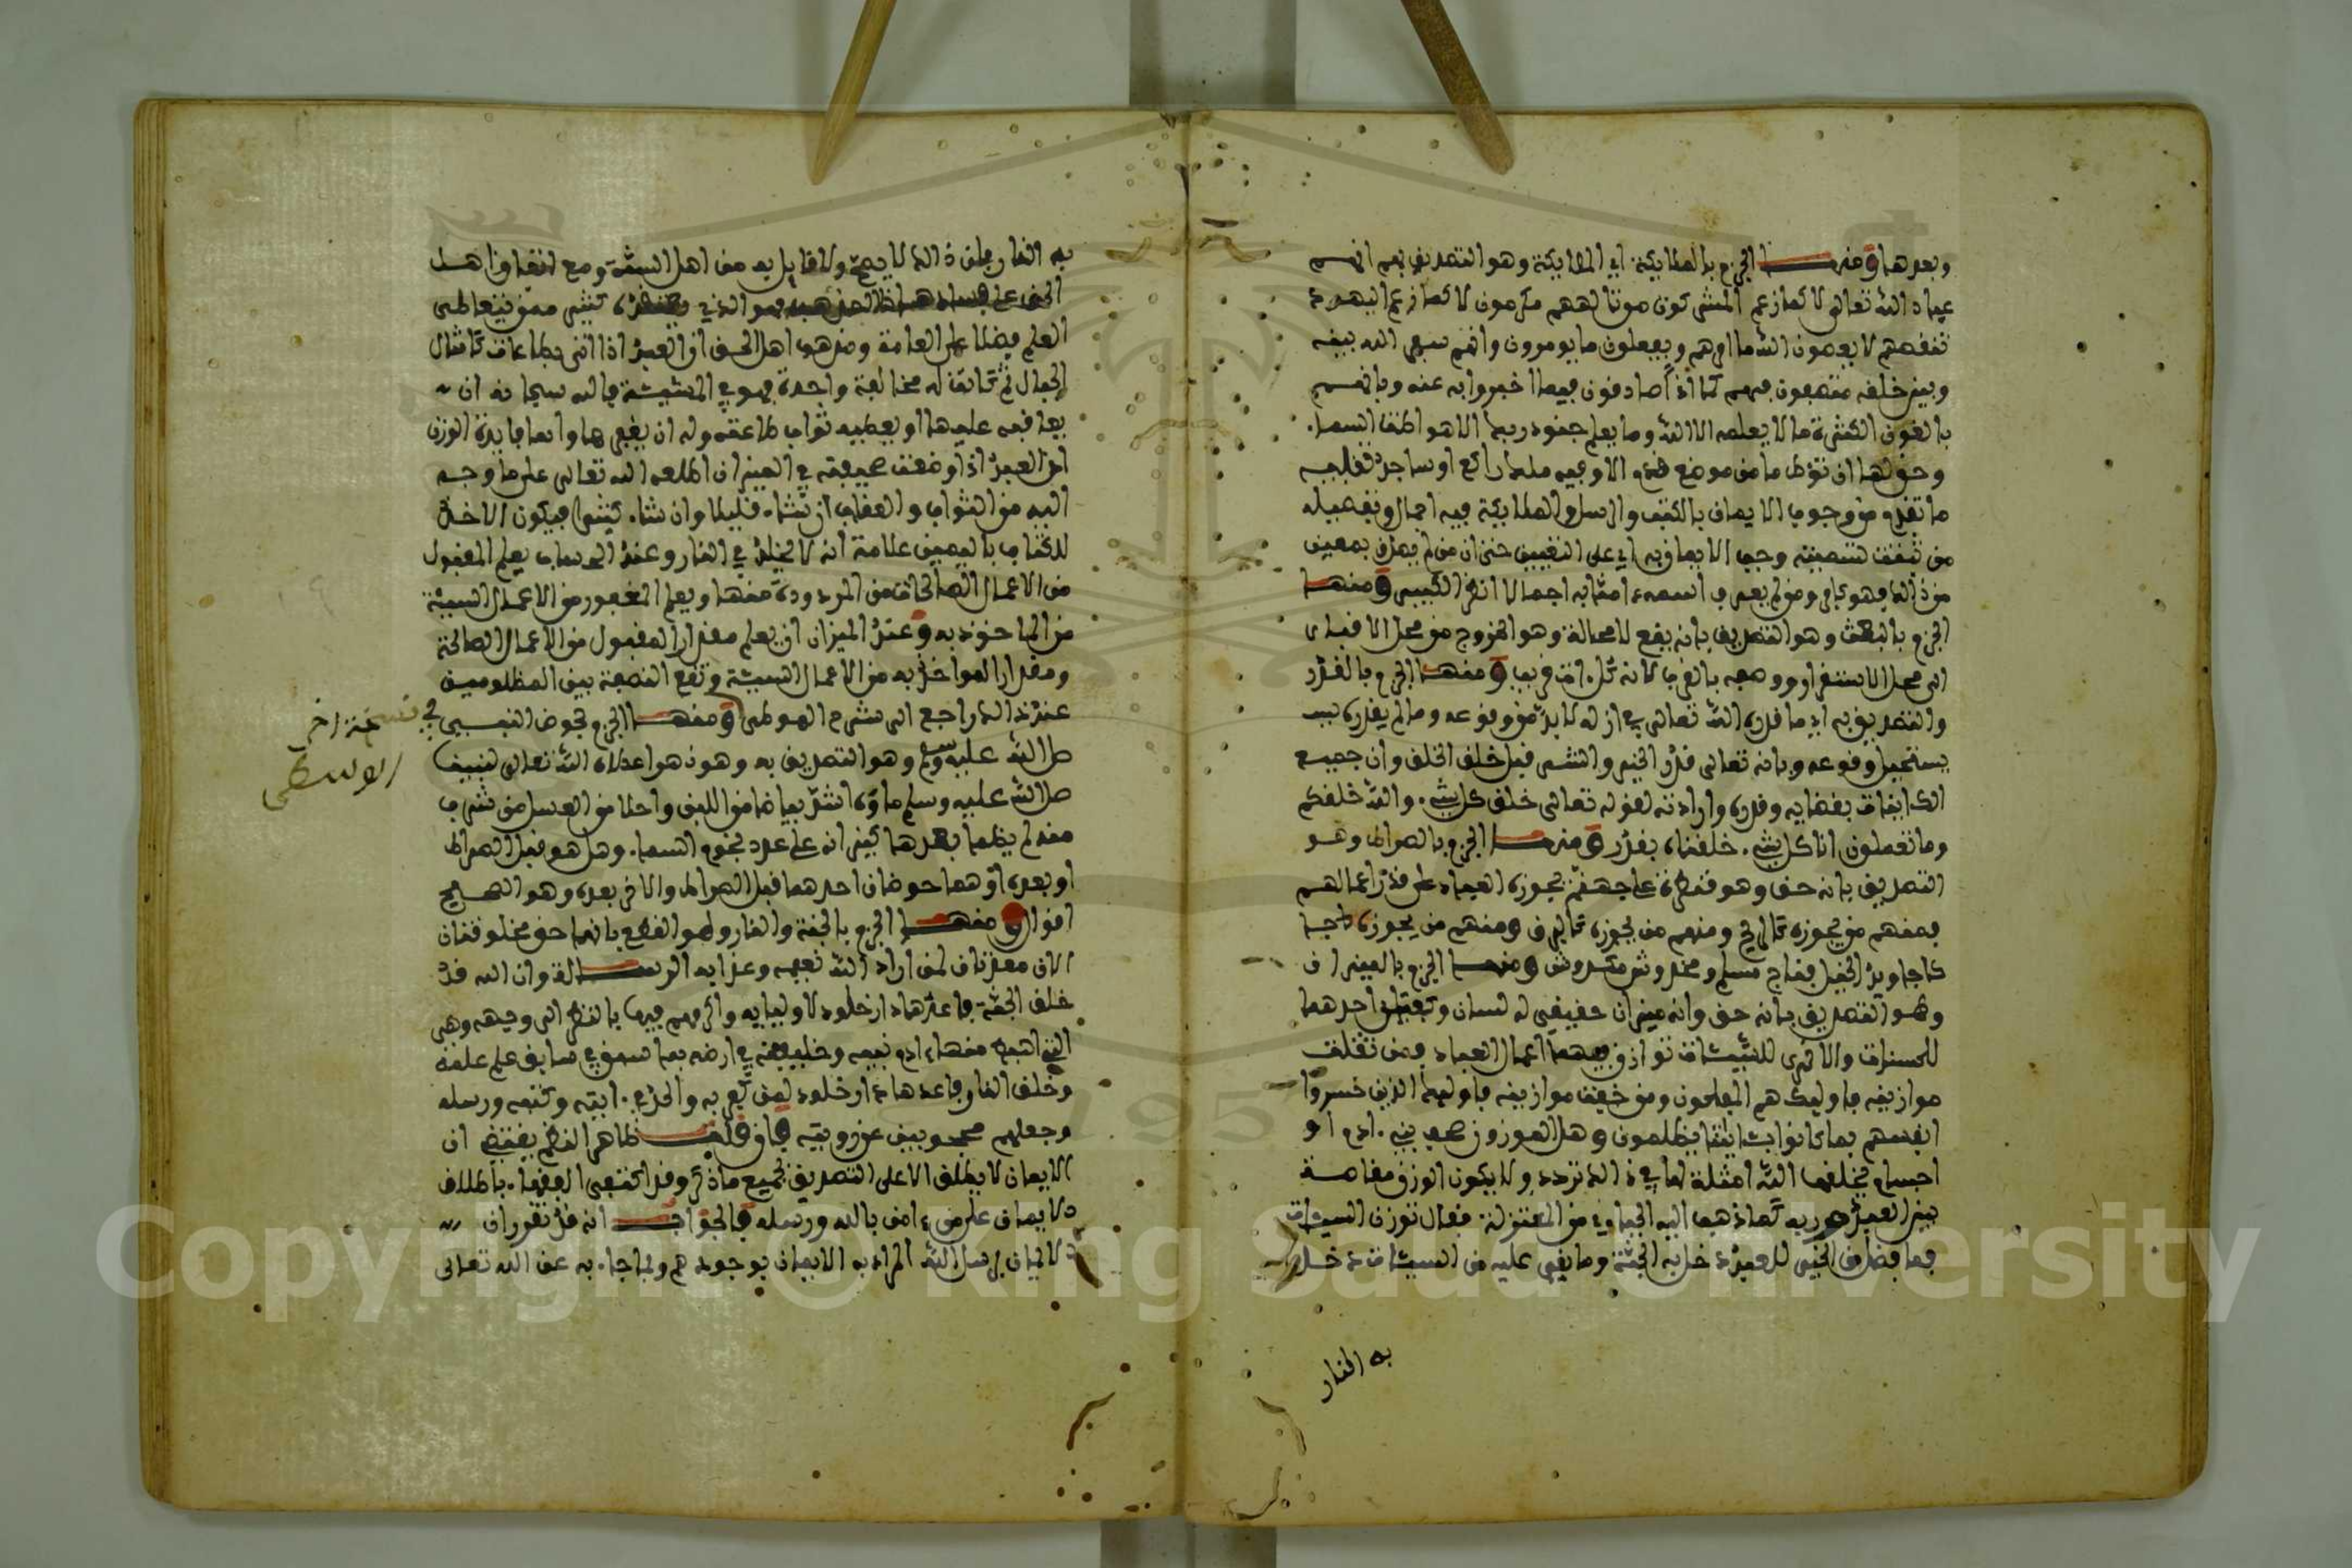 وبعدها ومنها الجزم بالملائكة اي الملائكة وهو التصديق بهم انهم
عباد الله تعالى لا كما زعم المشركون من تالههم مكرمون لا كما زعم اليهود من
تنقصهم لا يعصون الله ما امرهم ويفعلون ما يومرون وانهم سفراء الله بينه
وبين خلقه متصرفون فيهم كما اذن صادقون فيما اخبروا به عنه وبانهم
بالغون الكثرة ما لا يعلمه الا الله وما يعلم جنود ربك الا هو اطت السماء
وحق لها ان تئط ما من موضع قدم الا وفيه ملك راكع او ساجد
ما تقدم من وجوب الايمان بالكتب والرسل والملائكة فيه اجمال وتفصيله
من ثبتت تسميته وجب الايمان به اي على التعيين حتى ان من لم يصدق بمعين
من ذلك فهو كافر ومن لم يعرف اسمه امنا به اجمالا انظر الكبير ومنها
الجزم بالبعث وهو التصديق بانه يقع لا محالة وهو الخروج من محل الاقبار
الى محل الاستقرار ووصفه بالقرب لانه كل ات قريب ومنها الجزم بالقدر
والتصديق به اي ما قدره الله تعالى في ازله لا بد من وقوعه وما لم يقدره
يستحيل وقوعه وبانه تعالى قدر الخير والشر قبل خلق الخلق وان جميع
الكاينات بقضايه وقدره وارادته لقوله تعالى خلق كل شيء والله خلقكم
وما تعملون انا كل شيء خلقناه بقدر ومنها الجزم بالصراط وهو
التصديق بانه حق وهو قنطرة على جهنم يجوزه العباد على قدر اعمالهم
فمنهم من يجوزه كالريح ومنهم من يجوزه كالبرق ومنهم من يجوزه
كاجاويد الخيل فناج مسلم ومخدوش مكدوش ومنها الجزم بالميزان
وهو التصديق بانه حق وانه ميزان حقيقي له لسان وكفتان احدهما
للحسنات والاخرى للسيئات توزن بهما اعمال العباد فمن ثقلت
موازينه فاوليك هم المفلحون ومن خفت موازينه فاوليك الذين خسروا
انفسهم بما كانوا باياتنا يظلمون وهل الموزون صحف بني ادم او
اجسام يخلقها الله امثلة لها في ذلك تردد ولا يكون الوزن مقاصة
بين العبد وربه كما ذهب اليه الجباوي من المعتزلة فقال توزن السيئات
فما فضل من الخير للعبد دخل به الجنة وما بقي عليه من السيئات دخل
به النار
به النار فان ذلك لا يصح ولا قايل به من اهل السنة ومع اتفاق اهل
الحق على فساد هذا المذهب
العلم فضلا على العامة ومذهب اهل الحق ان العبد اذا اتى بطاعات كامثال
الجبال ثم كانت له مخالفة واحدة فهو في المشيئة فالله سبحانه ان
يعاقبه عليها او يعطيه ثواب طاعته وله ان يغفرها وانما فايدة الوزن
ان العبد اذا وضعت صحيفته في الميزان اطلعه الله تعالى على ما وجه
اليه من الثواب والعقاب ان شاء قليلا وان شاء كثيرا فيكون الاخذ
للكتاب باليمين علامة انه لا يخلد في النار وعند الحساب يعلم المقبول
من الاعمال الصالحات من المردودة منها ويعلم المغفور من الاعمال السيئة
من الماخوذ به وعند الميزان ان يعلم مقدار المقبول من الاعمال الصالحة
ومقدار المواخذ به من الاعمال السيئة وتقع النصفة بين المظلومين
عند ذلك راجع الى شرح الوسطى ومنها الجزم بحوض النبي
في نسخة اخر
الوسطى
صلى الله عليه وسلم وهو التصديق به وهو نهر اعطاه الله تعالى لنبينا
صلى الله عليه وسلم ماؤه اشد بياضا من اللبن واحلا من العسل من شرب
منه لم يظما بعدها كيزانه على عدد نجوم السماء وهل هو قبل الصراط
او بعده او هما حوضان احدهما قبل الصراط والاخر بعده وهو الصحيح
اقوال ومنها الجزم بالجنة والنار وهو القطع بانهما حق مخلوقتان
الان معدتان لمن اراد الله نعيمه وعذابه الرسالة وان الله قد
خلق الجنة فاعدها دار خلود لاوليايه واكرمهم فيها بالنظر الى وجهه وهي
التي اهبط منها ادم نبيه وخليفته في ارضه بما سبق في سابق علمه
وخلق النار فاعدها دار خلود لمن كفر به والحد في اياته وكتبه ورسله
وجعلهم محجوبين عن رويته فان قلت ظاهر النظم يقتضي ان
الايمان لا يطلق الا على التصديق بجميع ما ذكر وقد اكتفى الفقهاء باطلاق
الايمان على من امن بالله ورسله فالجواب انه قد تقرر ان
الايمان برسل الله المراد به الايمان بوجودهم ولما جاء به عن الله تعالى
Copyright © King Saud University
1957